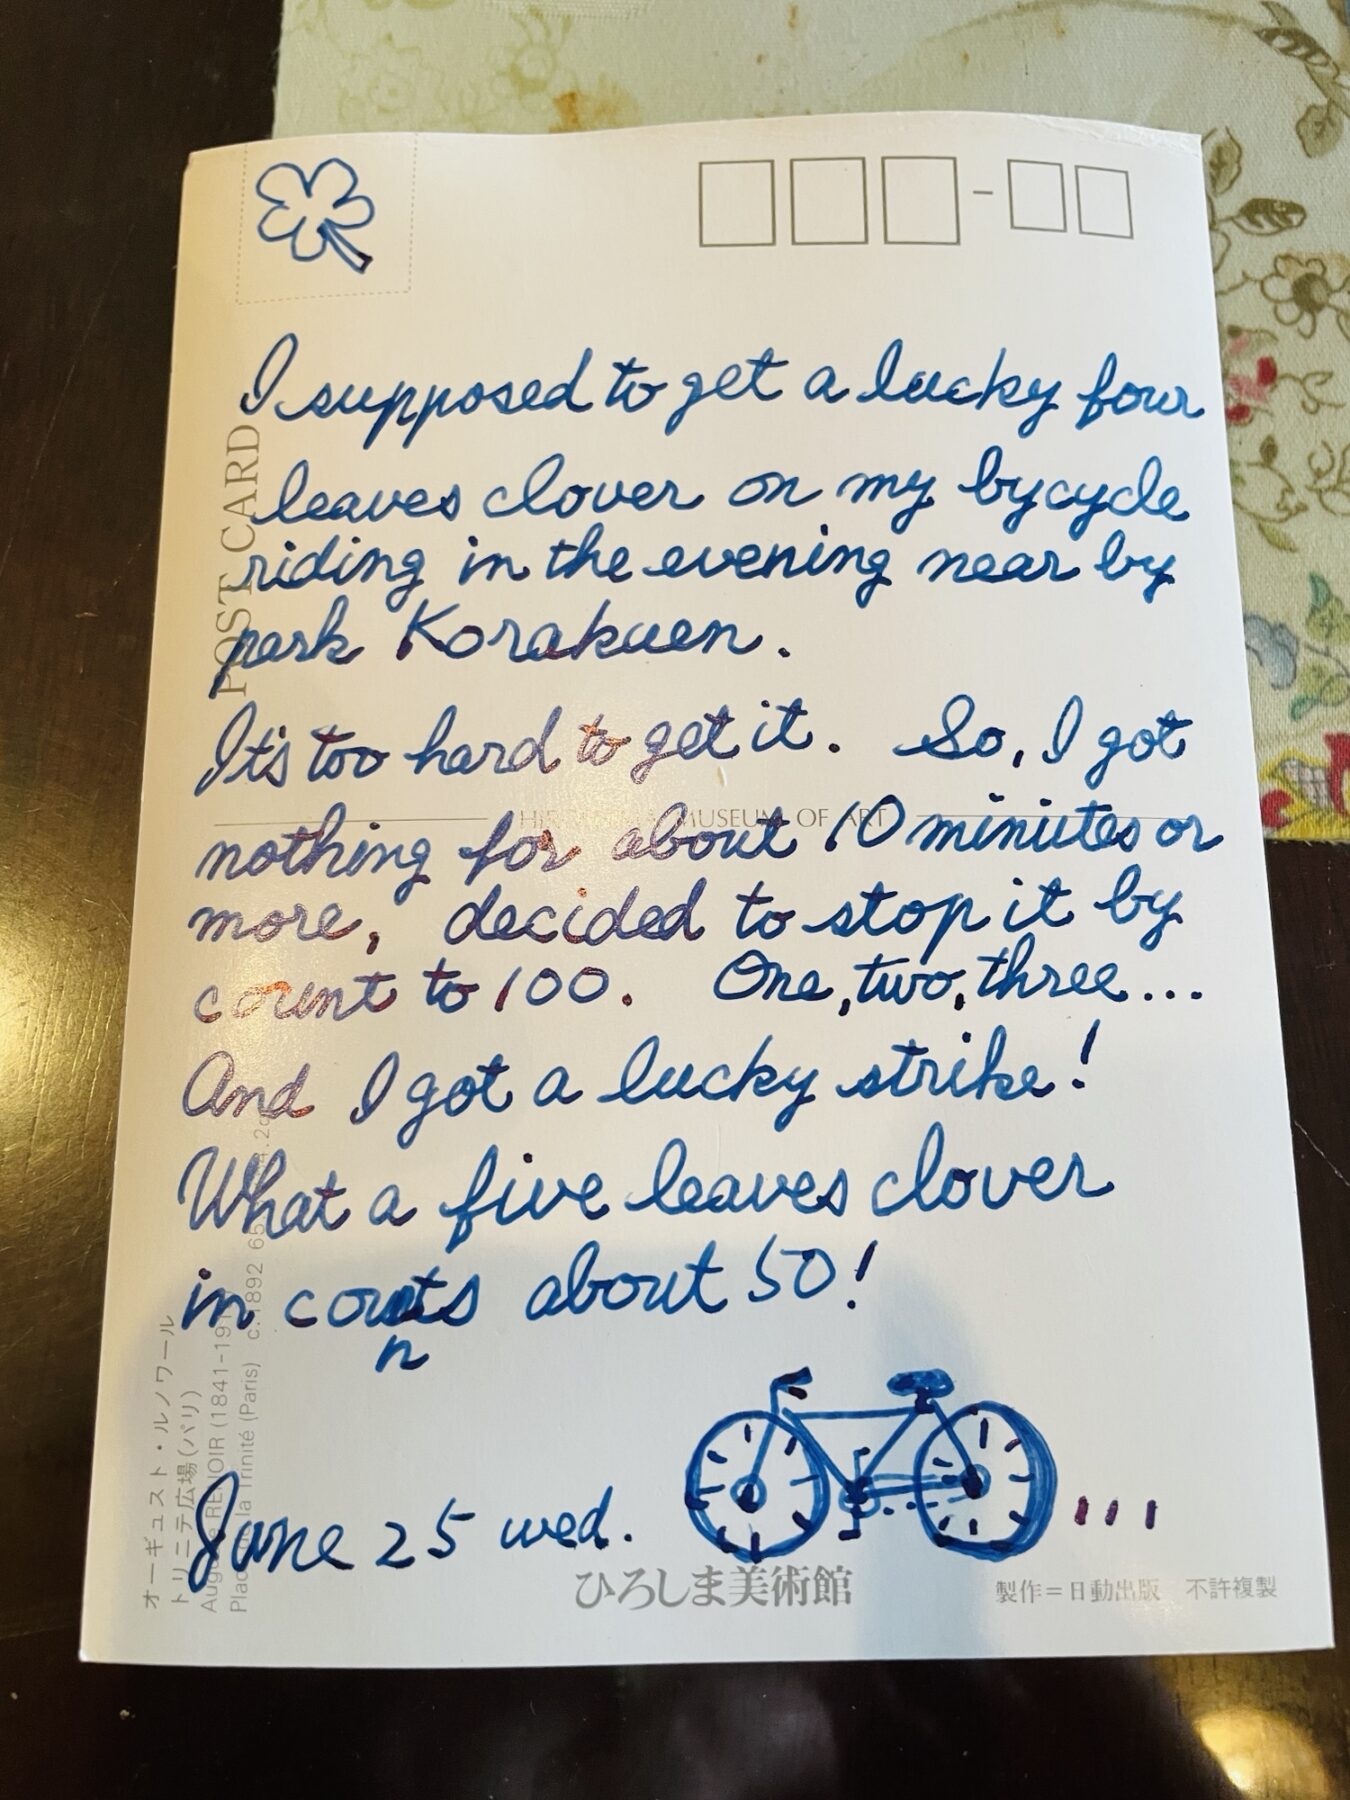 I supposed to get a lucky four
leaves clover on my bycycle
riding in the evening near by
park Korakuen.
It's too hard to get it. So, I got
HIROSHIMA MUSEUM OF ART
nothing for about 10 minutes or
more, decided to stop it by
count to 100. One, two, three...
And I got a lucky strike!
What a five leaves clover
in counts about 50!
n
June 25 wed.
POST CARD
オーギュスト・ルノワール
トリニテ広場(パリ)
Auguste RENOIR (1841-191
Place de la Trinité (Paris) c.1892 65
ひろしま美術館
製作=日動出版 不許複製